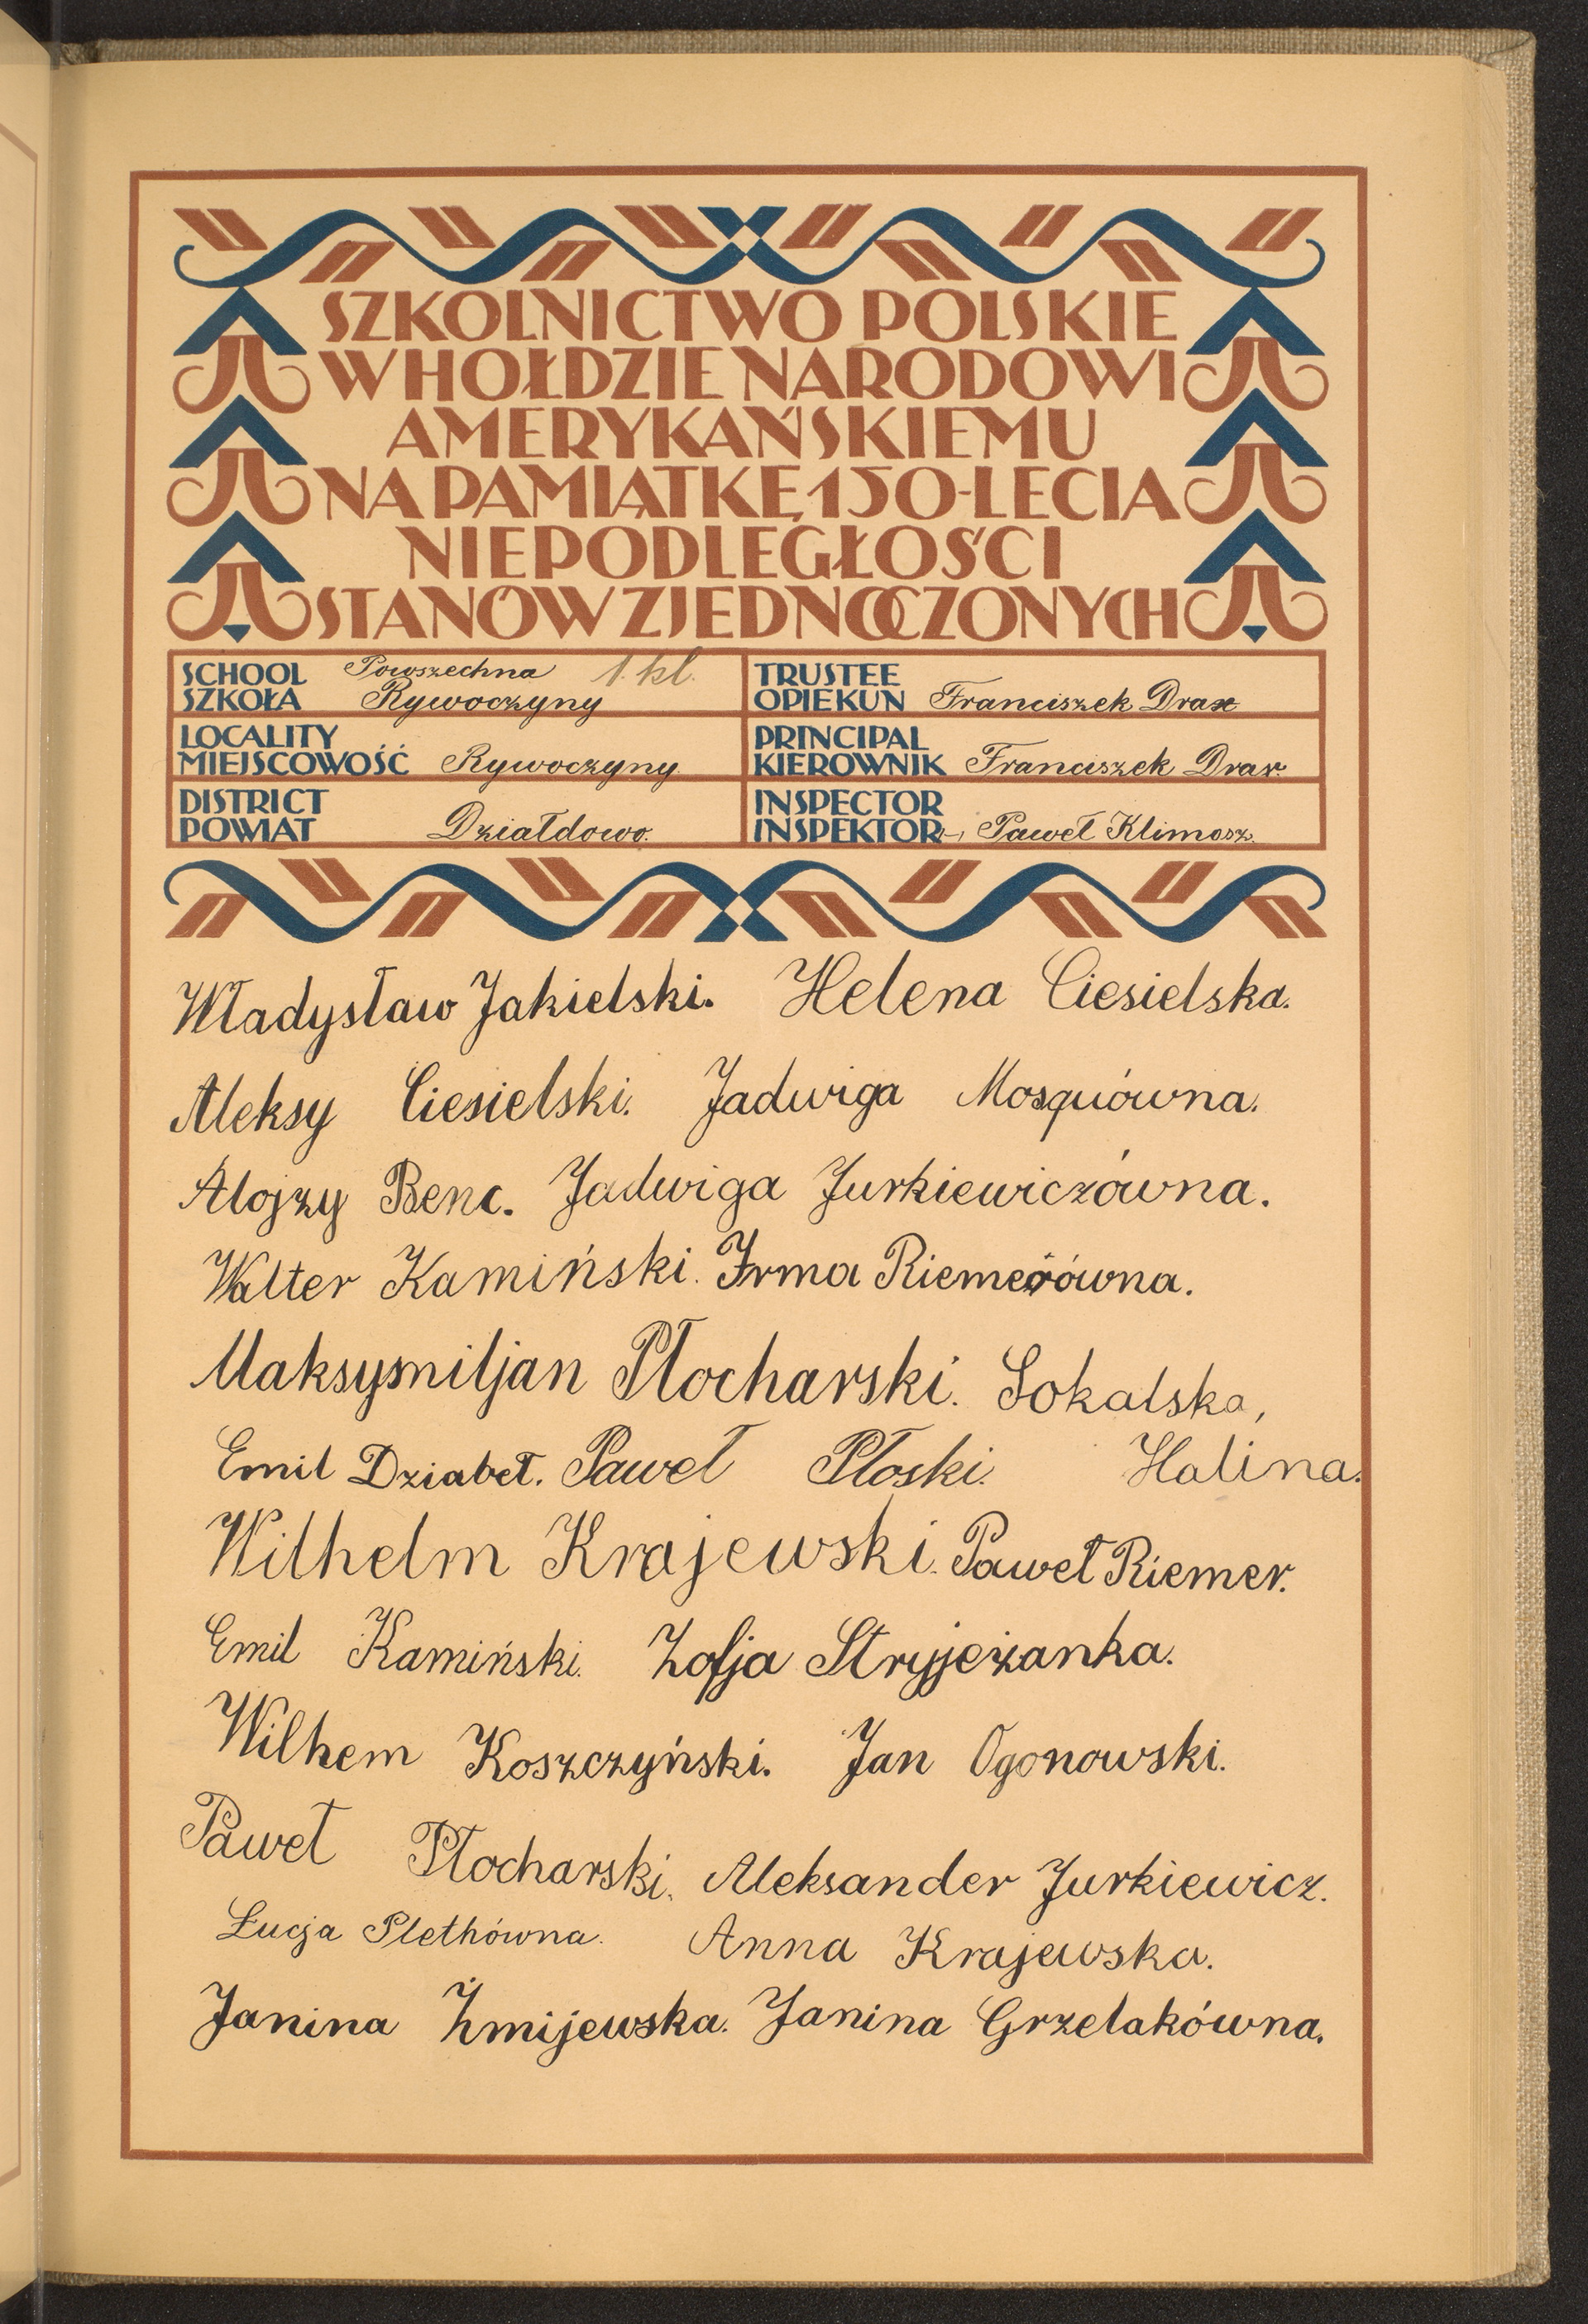 SZKOLNICTWO POLSKIE
W HOŁDZIE NARODOWI
AMERYKAŃSKIEMU
NA PAMIĄTKĘ 150-LECIA
NIEPODLEGŁOŚCI
STANÓW ZJEDNOCZONYCH
SCHOOL Powszechna 1. kl.
SZKOŁA Rywoczyny
TRUSTEE
OPIEKUN Franciszek Drax
LOCALITY
MIEJSCOWOŚĆ Rywoczyny
PRINCIPAL
KIEROWNIK Franciszek Drax
DISTRICT
POWIAT Działdowo.
INSPECTOR
INSPEKTOR Paweł Klimosz.
Władysław Jakielski. Helena Ciesielska.
Aleksy Ciesielski. Jadwiga Mosquówna.
Alojzy Benc. Jadwiga Jurkiewiczówna.
Walter Kamiński. Irma Riemerówna.
Maksymiljan Płocharski. Sokalska,
Emil Dziabeł. Paweł Płoski. Halina.
Wilhelm Krajewski. Paweł Riemer.
Emil Kamiński. Zofja Stryjeżanka.
Wilhem Koszczyński. Jan Ogonowski.
Paweł Płocharski. Aleksander Jurkiewicz.
Łucja Plethówna. Anna Krajewska.
Janina Żmijewska. Janina Grzelakówna.